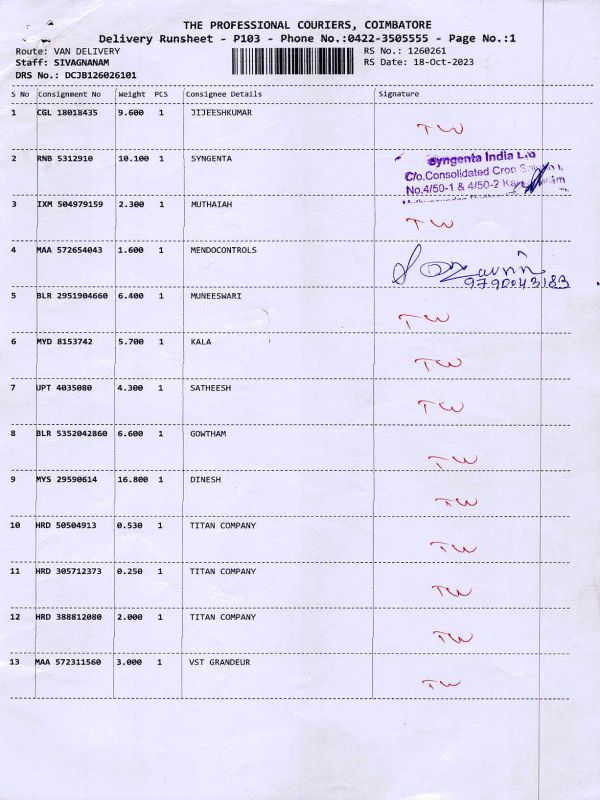 THE PROFESSIONAL COURIERS, COIMBATORE
Delivery Runsheet - P103 - Phone No.:0422-3505555 - Page No.:1
Route: VAN DELIVERY RS No.: 1260261
Staff: SIVAGNANAM RS Date: 18-Oct-2023
DRS No.: DCJB126026101
S No Consignment No Weight PCS Consignee Details Signature
1 CGL 18018435 9.600 1 JIJEESHKUMAR TW
2 RNB 5312910 10.100 1 SYNGENTA
Syngenta India
C/o.Consolidated Crop
No.4/50-1 & 4/50-2
3 IXM 504979159 2.300 1 MUTHAIAH TW
4 MAA 572654043 1.600 1 MENDOCONTROLS
9790043183
5 BLR 2951904660 6.400 1 MUNEESWARI TW
6 MYD 8153742 5.700 1 KALA TW
7 UPT 4035080 4.300 1 SATHEESH TW
8 BLR 5352042860 6.600 1 GOWTHAM TW
9 MYS 29590614 16.800 1 DINESH TW
10 HRD 50504913 0.530 1 TITAN COMPANY TW
11 HRD 305712373 0.250 1 TITAN COMPANY TW
12 HRD 388812080 2.000 1 TITAN COMPANY TW
13 MAA 572311560 3.000 1 VST GRANDEUR TW